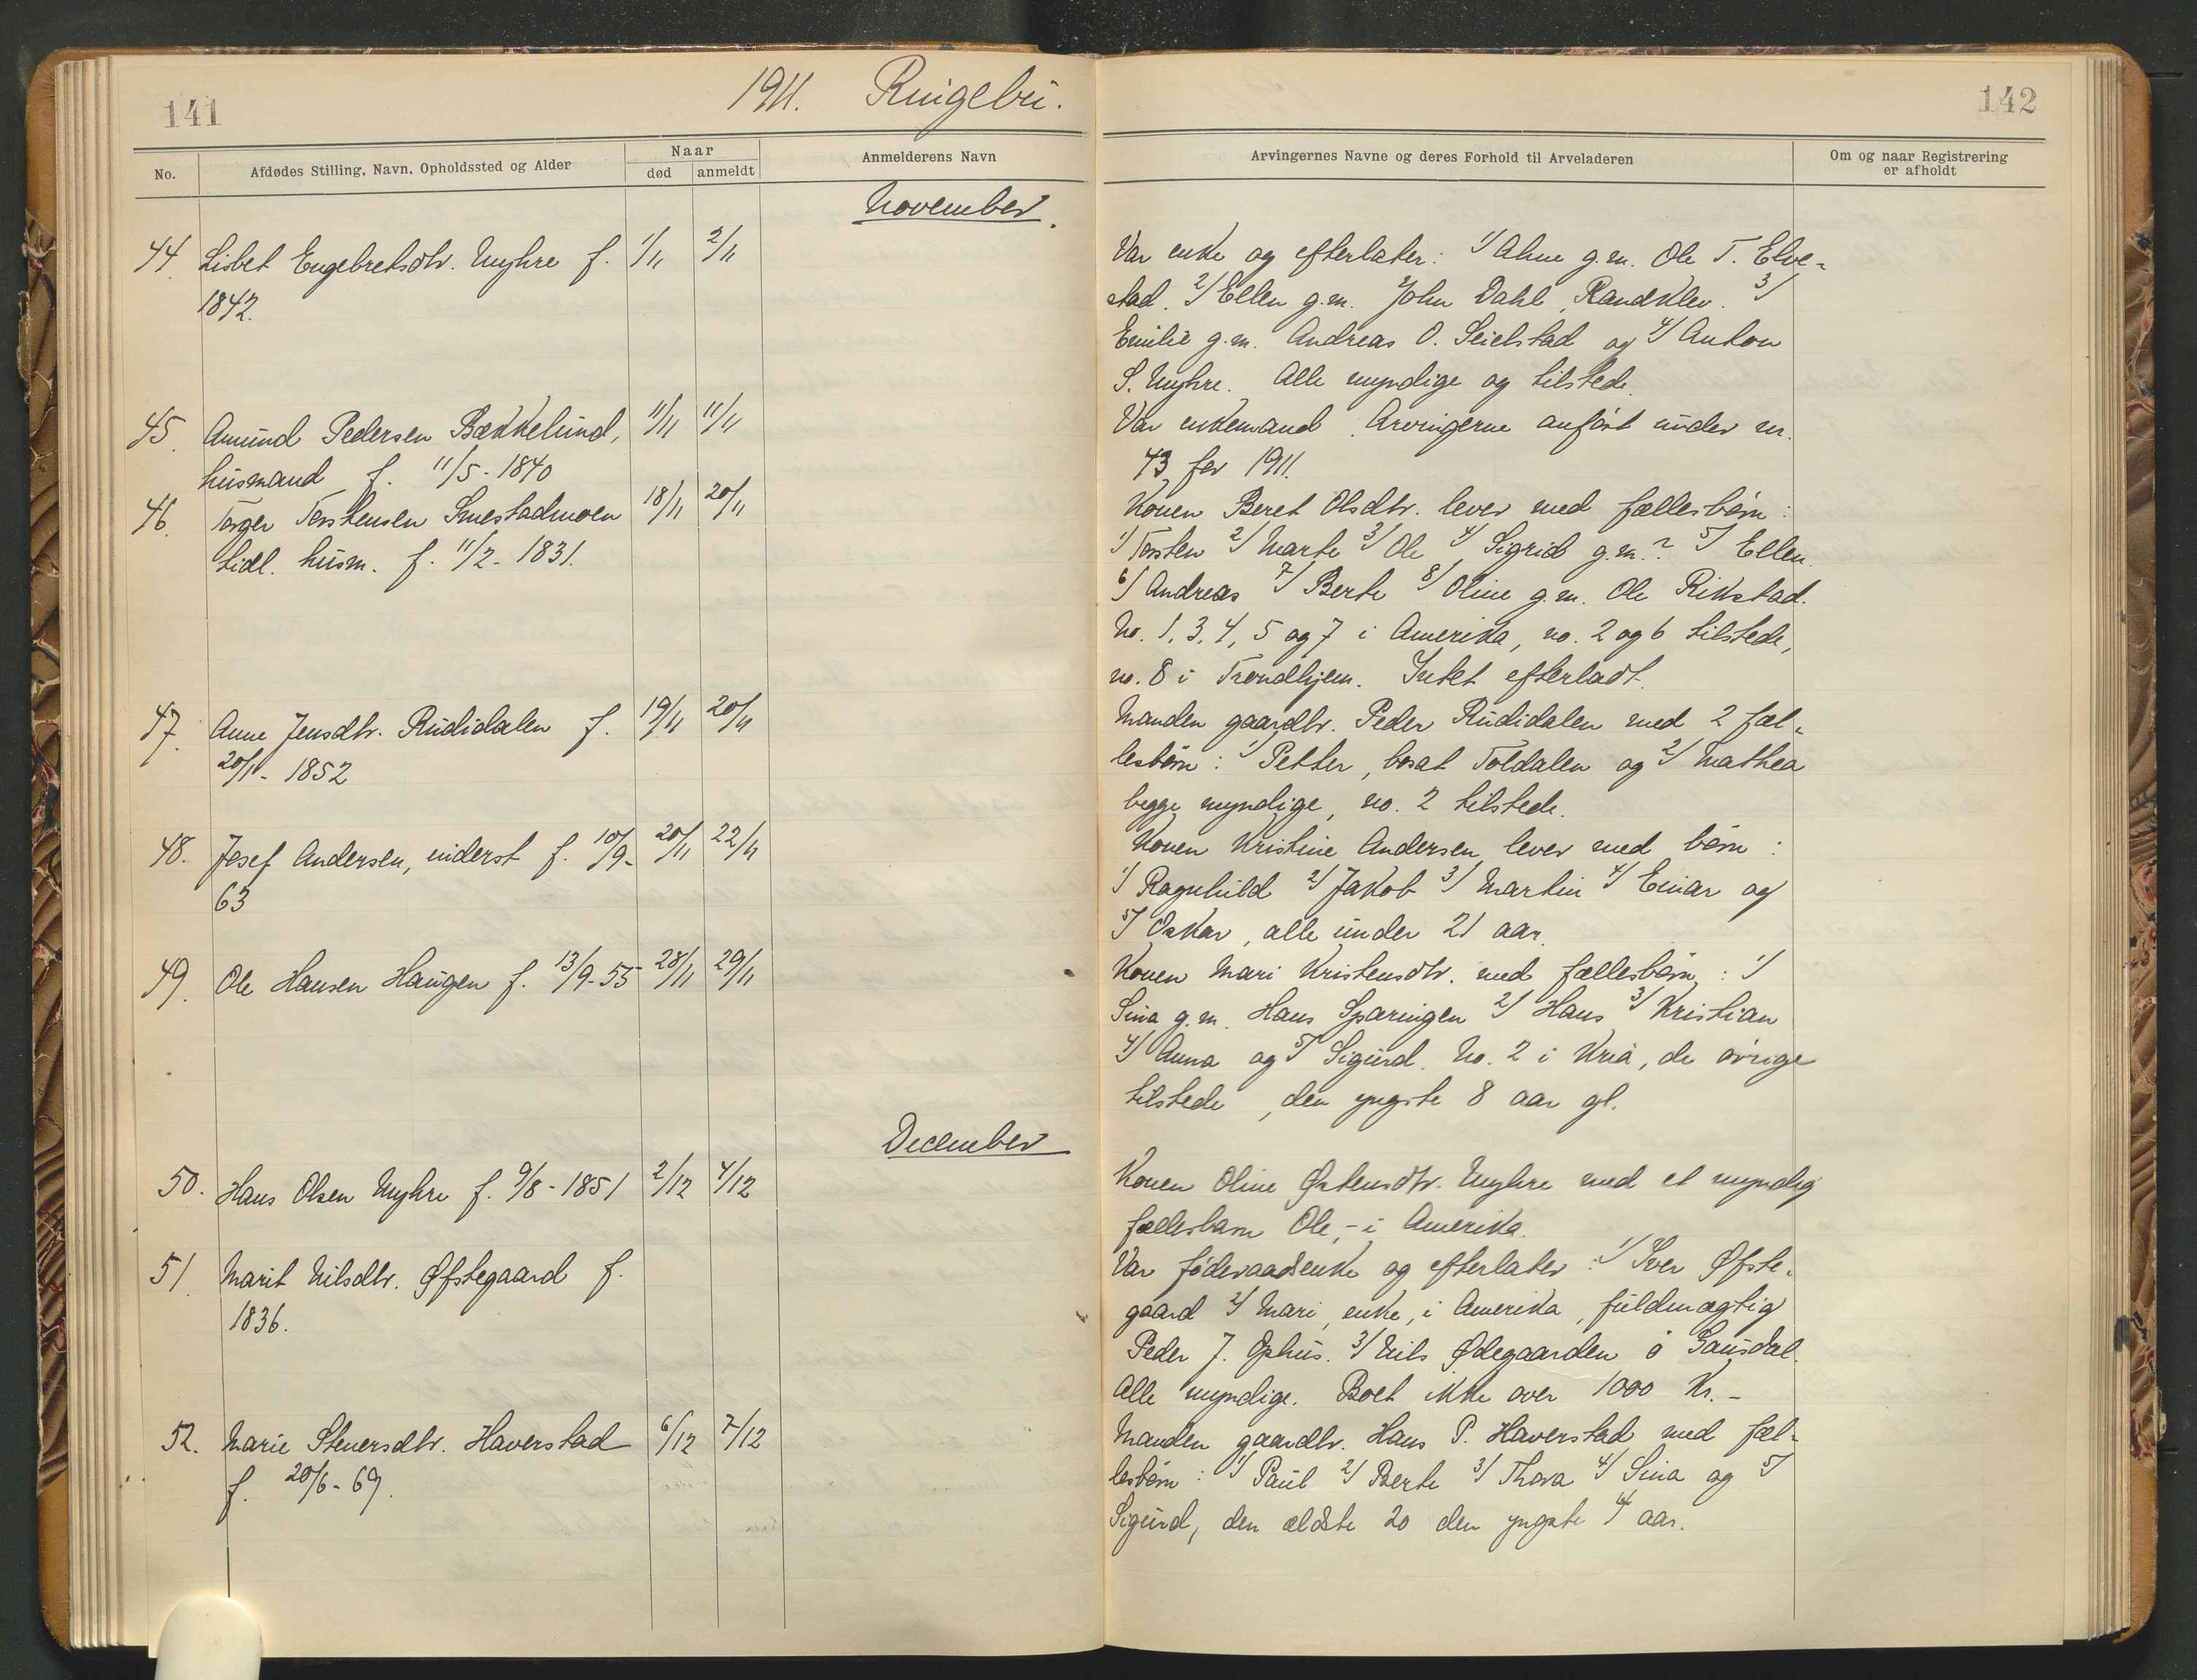 141
1911. Ringebu.
No.
Afdødes Stilling, Navn, Opholdssted og Alder
Naar
død
anmeldt
Anmelderens Navn
November.
44. Lisbet Engebretsdtr. Myhre f. 1/11 2/11
1842.
45. Amund Pedersen Bækkelund, 11/11 11/11
husmand f. 11/5-1840
46. Torger Torstensen Smestadmoen 18/11 20/11
tidl. husm. f. 11/2-1831.
47. Anne Jensdtr. Rudidalen f. 19/11 20/11
20/11-1852
48. Josef Andersen, inderst f. 10/9- 20/11 22/11
63
49. Ole Hansen Haugen f. 13/9-55 28/11 29/11
December
50. Hans Olsen Myhre f. 9/8-1851 2/12 4/12
51. Marit Nilsdtr. Øfstegaard f.
1836.
52. Marie Stenersdtr. Haverstad 6/12 7/12
f. 20/6-69.
142
Arvingernes Navne og deres Forhold til Arveladeren
Om og naar Registrering
er afholdt
Var enke og efterlater: 1/ Ahne g.m. Ole T. Elve-
stad. 2/ Ellen g.m. John Dahl, Randklev. 3/
Emilie g.m. Andreas O. Seielstad og 4/ Anton
S. Myhre. Alle myndige og tilstede.
Var enkemand. Arvingerne anført under nr.
43 for 1911.
Konen Beret Olsdtr. lever med fællesbørn:
1/ Torsten 2/ Marte 3/ Ole 4/ Sigrid g.m.? 5/ Ellen.
6/ Andreas 7/ Berte 8/ Oline g.m. Ole Rikstad.
No. 1, 3, 4, 5 og 7 i Amerika, no. 2 og 6 tilstede,
no. 8 i Trondhjem. Intet efterladt.
Manden gaardbr. Peder Rudidalen med 2 fæl-
lesbørn: 1/ Petter, bosat Toldalen og 2/ Mathea
begge myndige, no. 2 tilstede.
Konen Kristine Andersen lever med børn:
1/ Ragnhild 2/ Jakob 3/ Martin 4/ Einar og
5/ Oskar, alle under 21 aar.
Konen Mari Kristensdtr. med fællesbørn: 1/
Sina g.m. Hans Sparingen 2/ Hans 3/ Kristian
4/ Anna og 5/ Sigurd. No. 2 i Kria, de øvrige
tilstede, den yngste 8 aar gl.
Konen Oline Østensdtr. Myhre med et myndig
fællesbarn Ole,- i Amerika.
Var føderaadsenke og efterlater: 1/ Iver Øfste-
gaard 2/ Mari, enke, i Amerika, fuldmægtig
Peder J. Ophus. 3/ Nils Ødegaarden ö Gausdal.
Alle myndige. Boet ikke over 1000 Kr.-
Manden gaardbr. Hans P. Haverstad med fæl-
lesbørn: 1/ Paul 2/ Berte 3/ Thora 4/ Sina og 5/
Sigurd, den ældste 20 den yngste 4 aar.